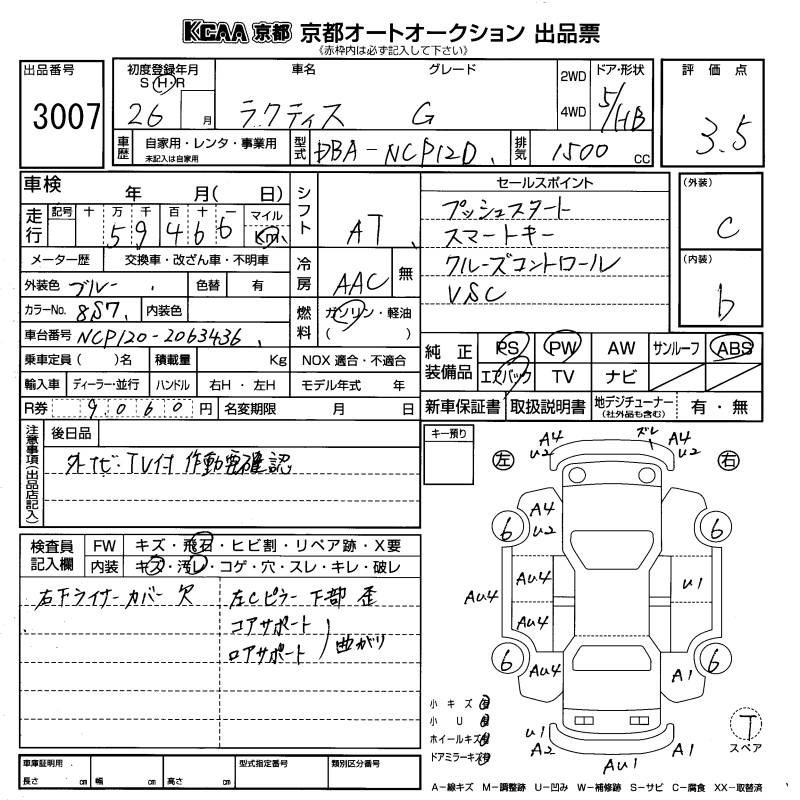 KCAA 京都 京都オートオークション 出品票
《赤枠内は必ず記入して下さい》
出品番号 3007
初度登録年月 S・H・R 26 月
車名 グレード ラクティス G
2WD 4WD
ドア・形状 5/HB
評価点 3.5
車歴 自家用・レンタ・事業用 未記入は自家用
型式 DBA-NCP120
排気 1500 CC
車検 年 月( 日)
シフト AT
走行 記号 十 万 千 百 十 一 マイル
59466 Km
メーター歴 交換車・改ざん車・不明車
冷房 AAC 無
外装色 ブルー 色替 有
カラーNo. 8S7 内装色
燃料 ガソリン・軽油 ( )
車台番号 NCP120-2063436
乗車定員( )名 積載量 Kg NOX 適合・不適合
輸入車 ディーラー・並行 ハンドル 右H・左H モデル年式 年
R券 9060 円 名変期限 月 日
セールスポイント
プッシュスタート
スマートキー
クルーズコントロール
VSC
(外装) C
(内装) b
純正装備品 PS PW AW サンルーフ ABS
エアバック TV ナビ
新車保証書 取扱説明書 地デジチューナー (社外品も含む) 有・無
注意事項(出品店記入)
後日品
外ナビ・TV付 作動要確認
検査員記入欄
FW キズ・飛石・ヒビ割・リペア跡・X要
内装 キズ・汚レ・コゲ・穴・スレ・キレ・破レ
右下ライナーカバー欠
左Cピラー下部 歪
コアサポート
ロアサポート 曲がり
車庫証明用 長さ cm 幅 cm 高さ cm
型式指定番号 類別区分番号
キー預り
左 右
A4 U2 ズレ A4 U2
A4 U2
6 6
AU4 AU4 U1
AU4
6 6
AU4 A1
U1 A2 AU1 A1
小キズ
小U
ホイールキズ
ドアミラーキズ
T スペア
A-線キズ M-調整跡 U-凹み W-補修跡 S-サビ C-腐食 XX-取替済